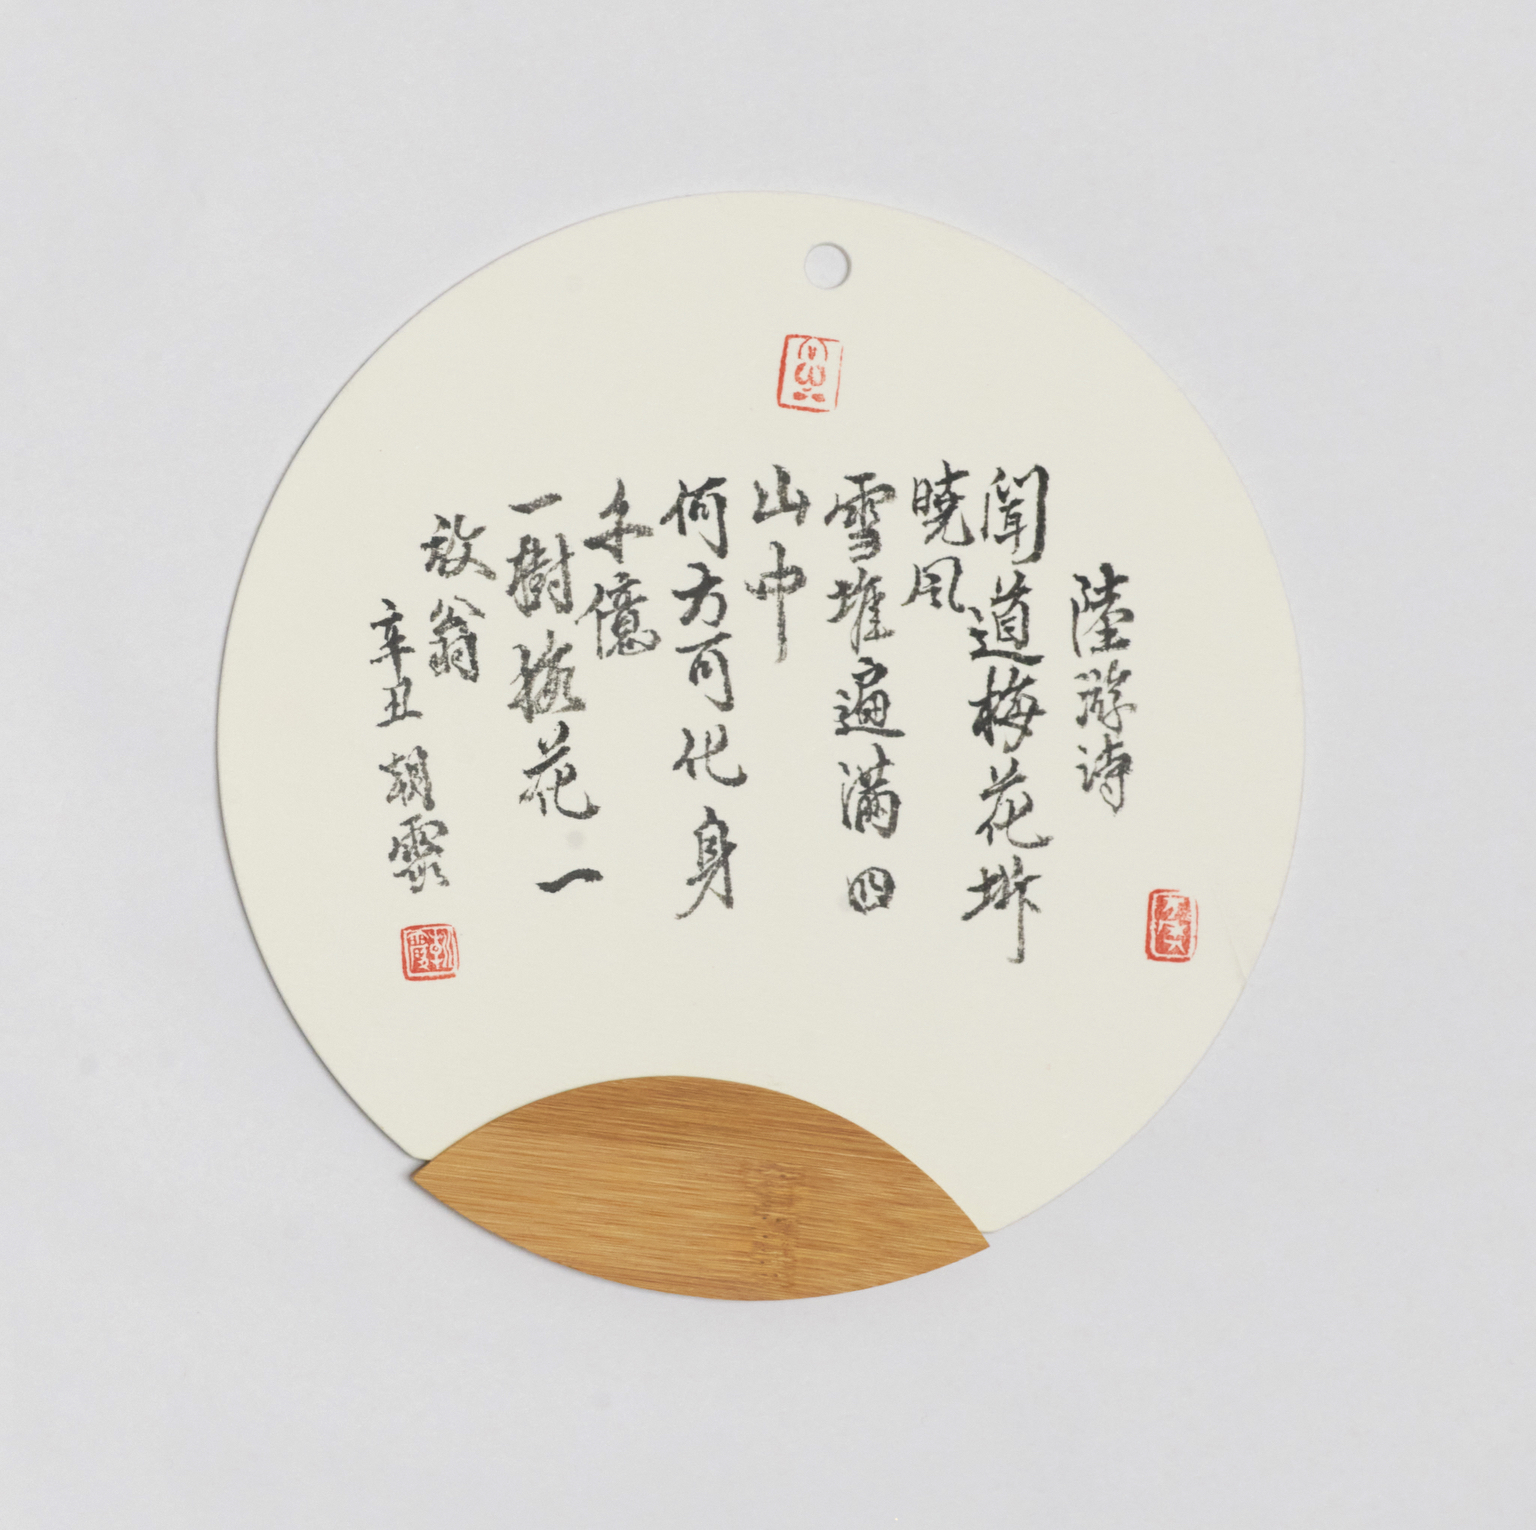 陸游詩
聞道梅花坼
曉風
雪堆遍滿四
山中
何方可化身
千億
一樹梅花一
放翁
辛丑 朝霞
朝霞